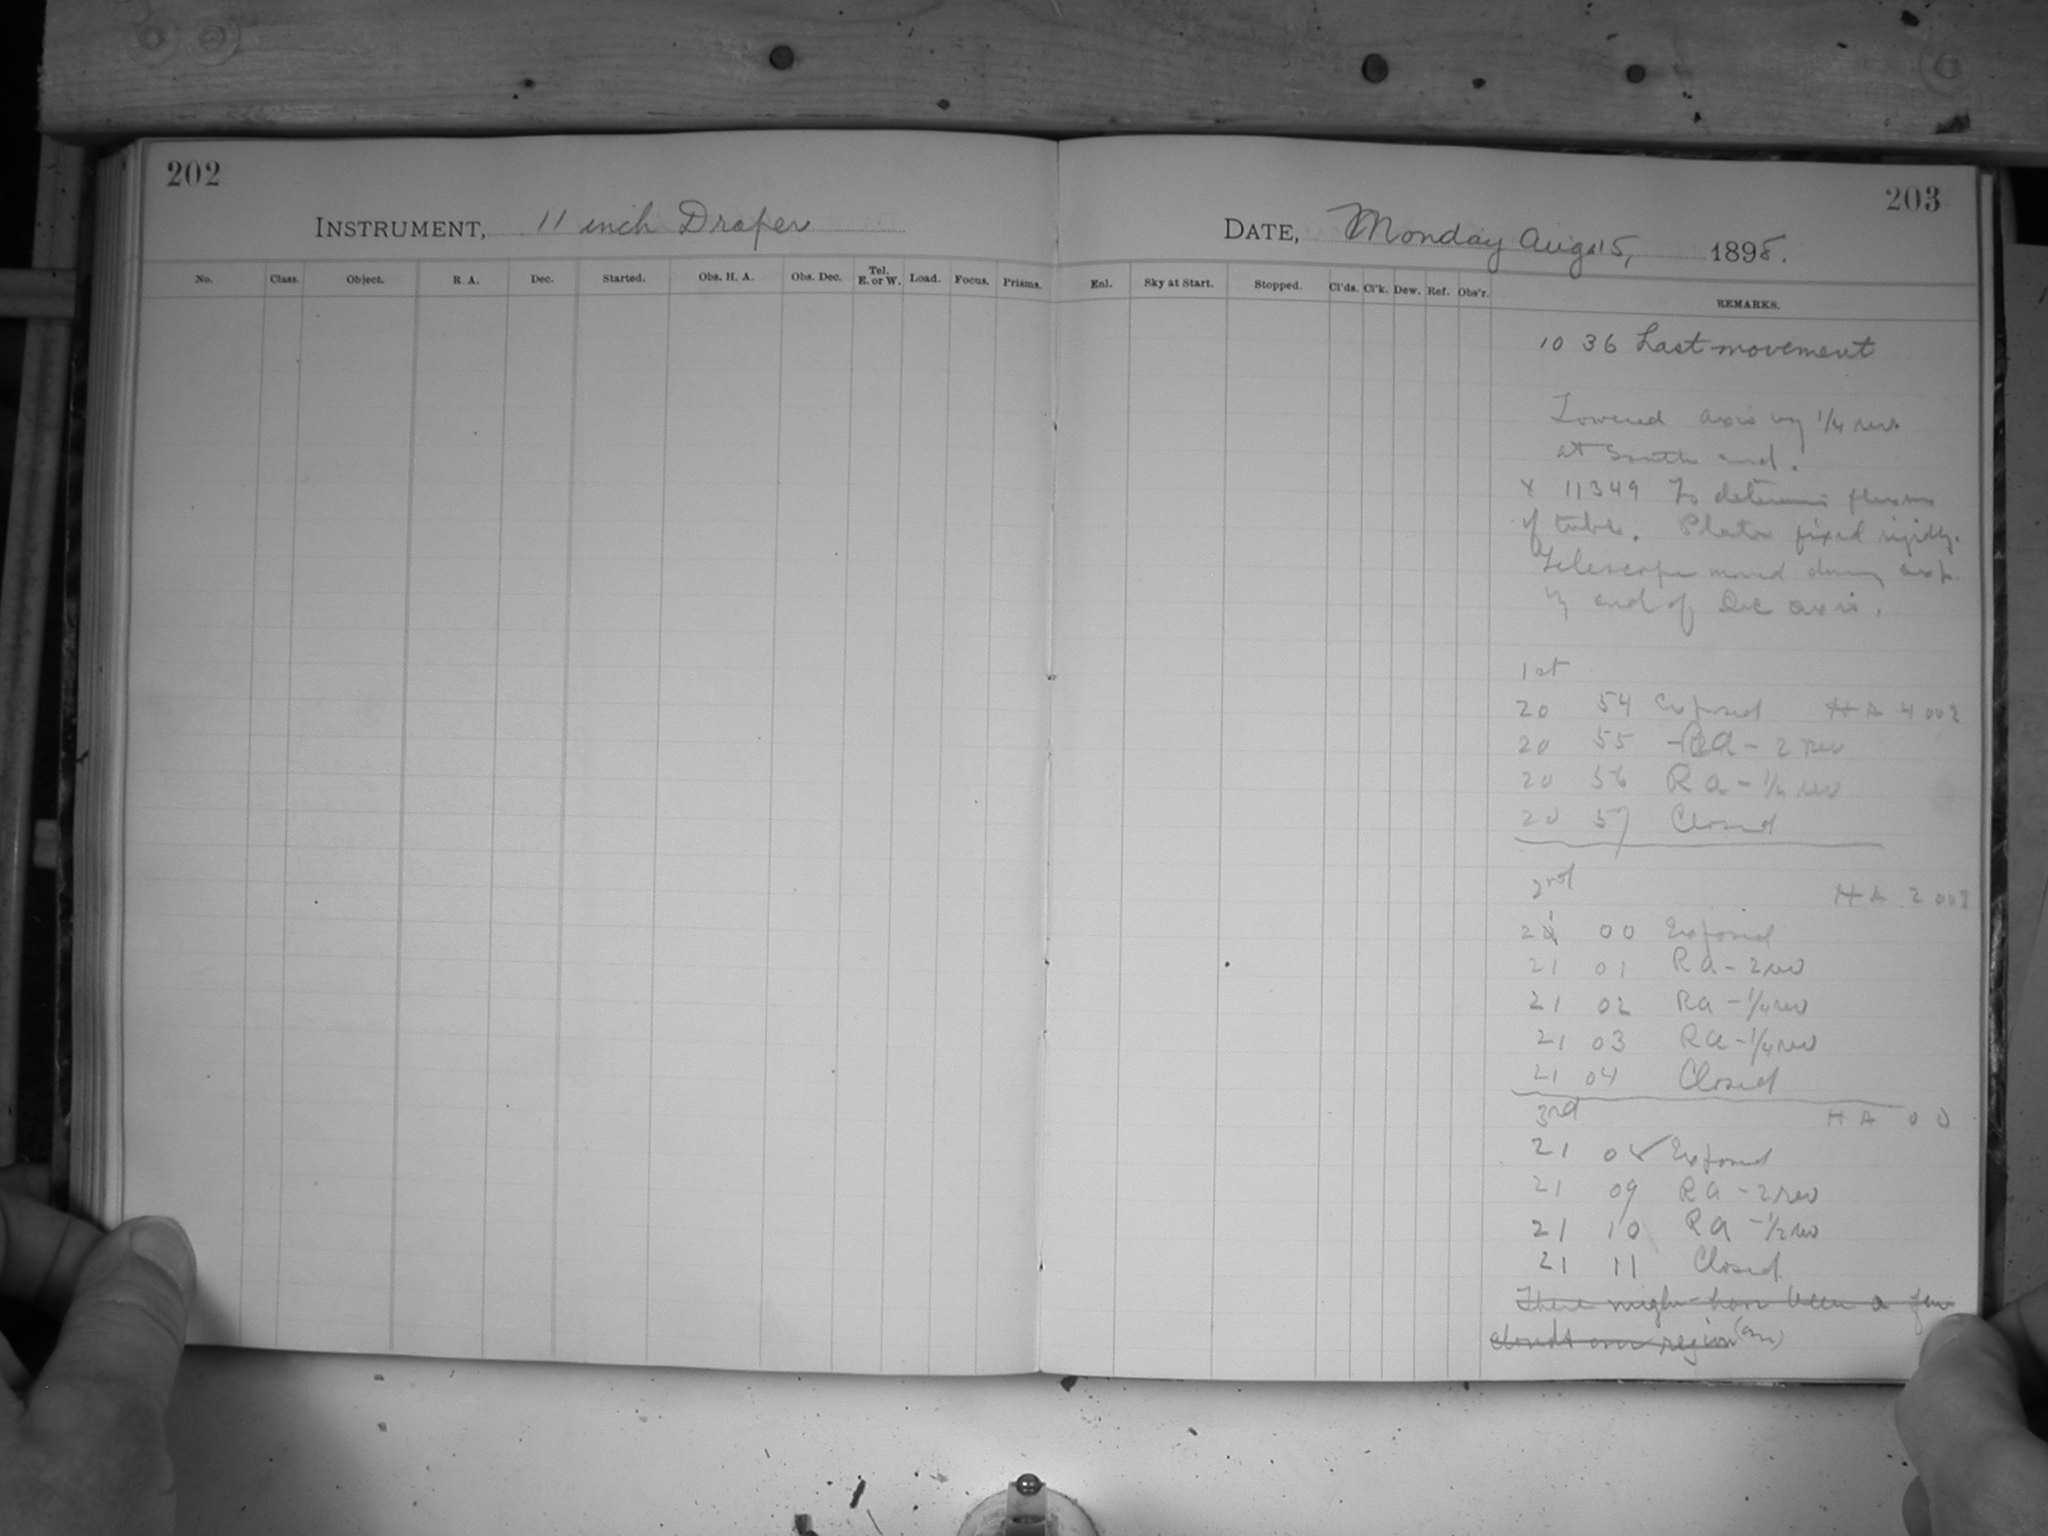 202
203
INSTRUMENT, 11 inch Draper
DATE, Monday Aug. 15, 1898.
No. Class. Object. R. A. Dec. Started. Obs. H. A. Obs. Dec. Tel. E. or W. Load. Focus. Prisms.
Enl. Sky at Start. Stopped. Cl'ds. Cl'k. Dew. Ref. Obs'r. REMARKS.
10 36 Last movement
Lowered axis by 1/4 rev.
at South end.
x 11349 To determine flexure
of tube. Plate fixed rigidly.
Telescope moved during exp.
by end of Dec axis.
1st
20 54 Exposed HA 4 00
20 55 RA - 2 rev
20 56 Ra - 1/4 rev
20 57 Closed
2nd HA 2 00
21 00 Exposed
21 01 Ra - 2 rev
21 02 Ra - 1/4 rev
21 03 Ra - 1/4 rev
21 04 Closed
3rd HA 0 0
21 08 Exposed
21 09 Ra - 2 rev
21 10 Ra - 1/2 rev
21 11 Closed
There might have been a few
clouds over region